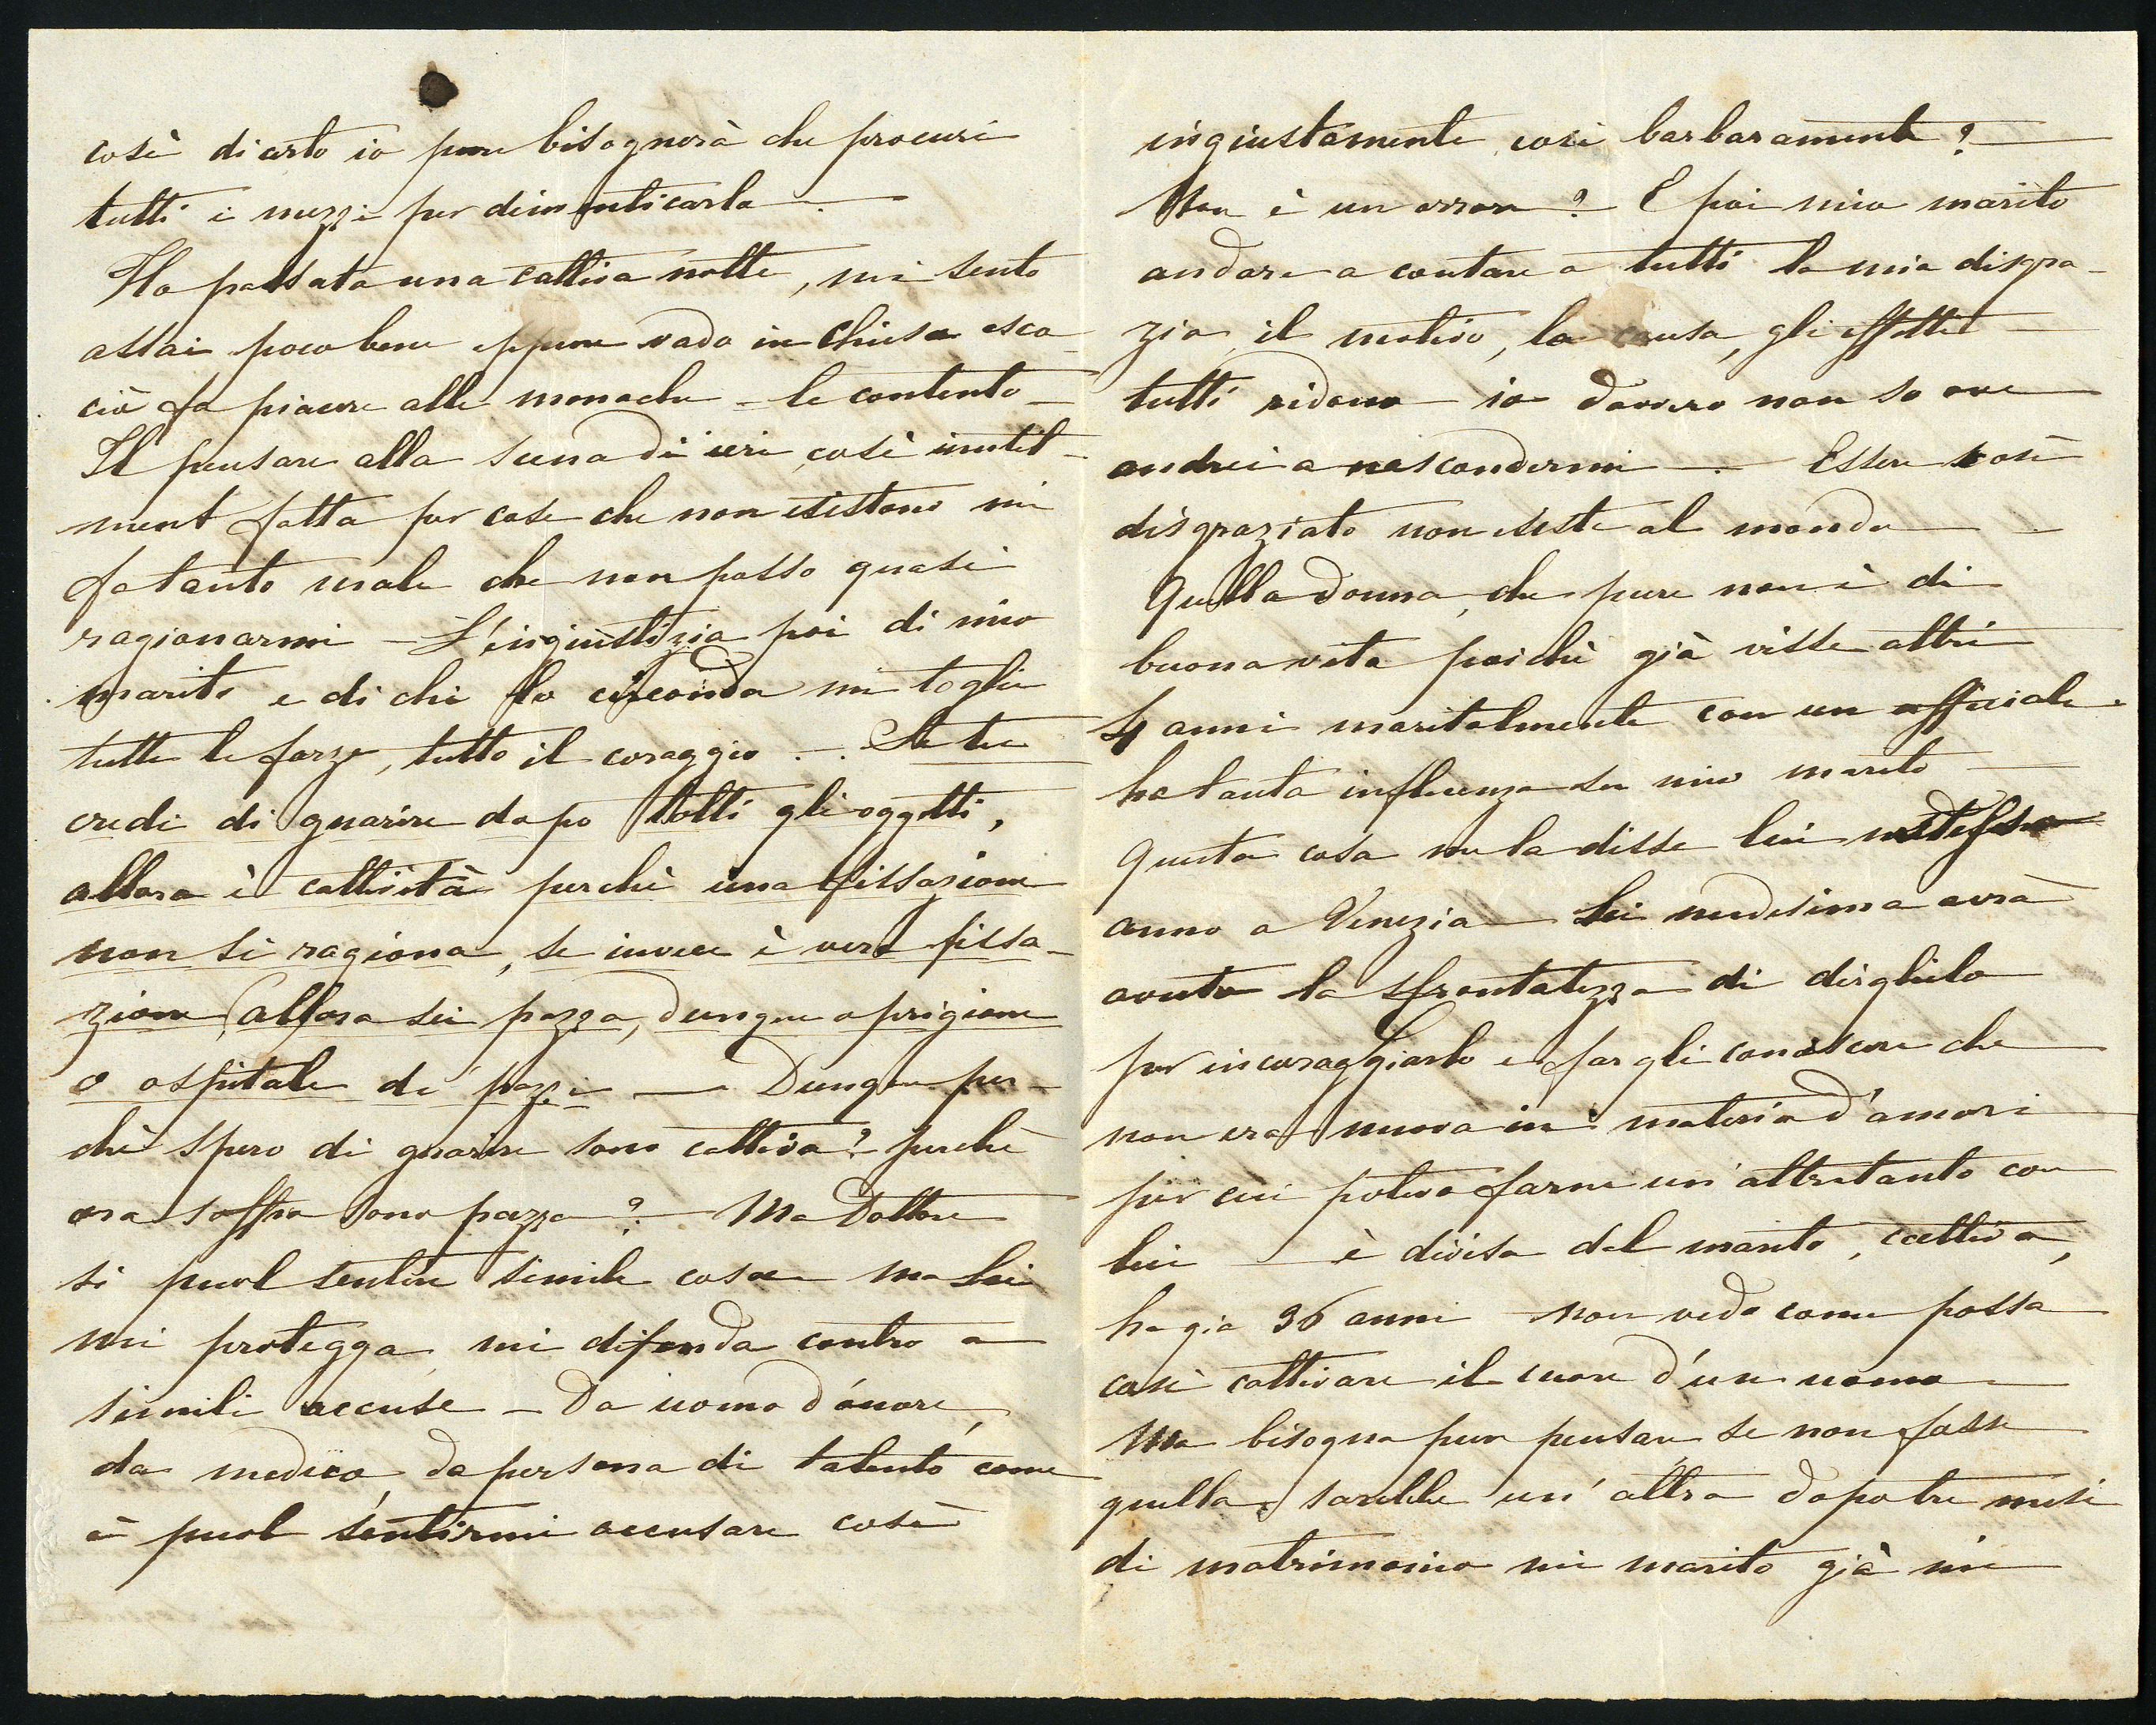 così di certo io pure bisognerà che procuri
tutti i mezzi per dimenticarla.
Ho passata una cattiva notte, mi sento
assai poco bene eppure vado in Chiesa esca
ciò fa piacere alle monache – le contento –
Il pensare alla scena di ieri, così inutil-
ment fatta per cose che non esistono mi
fa tanto male che non posso quasi
ragionarmi – L'ingiustizia poi di mio
marito e di chi lo circonda mi toglie
tutte le forze, tutto il coraggio . – . Se tu
credi di guarire dopo tolti gli oggetti,
allora è cattività perchè una fissazione
non si ragiona, se invece è vera fissa-
zione, allora sei pazza, dunque o prigione
o ospitale de' pazzi – Dunque per-
chè spero di guarire sono cattiva? perchè
ora soffro sono pazza? – Ma Dottore
si puol sentire simile cosa – ma Lei
mi protegga, mi difenda contro a
simili accuse – Da uomo d'onore,
da medico, da persona di talento come
è puol sentirmi accusare così
ingiustamente, così barbaramente? –
Non è un orrore? – E poi mio marito
andare a contare a tutti la mia disgra-
zia, il motivo, la causa, gli effetti –
tutti ridono – io davvero non so ove
andrei a nascondermi – . Essere così
disgraziato non esiste al mondo –
Quella donna, che pure non è di
buona vita poichè già visse altri
4 anni maritalmente con un officiale.
ha tanta influenza su mio marito –
Questa cosa me la disse lui
anno a Venezia – Lei medesima avrà
avuto la sfrontatezza di dirglielo
per incoraggiarlo e fargli conoscere che
non era nuova in materia d'amori
per cui poteva farne un'altretanto con
lui – è divisa dal marito, cattiva,
ha già 36 anni – non vedo come possa
così cattivare il cuore d'un uomo –
Ma bisogna pur pensare se non fosse
quella, sarebbe un'altra dopo tre mesi
di matrimonio mi marito già mi